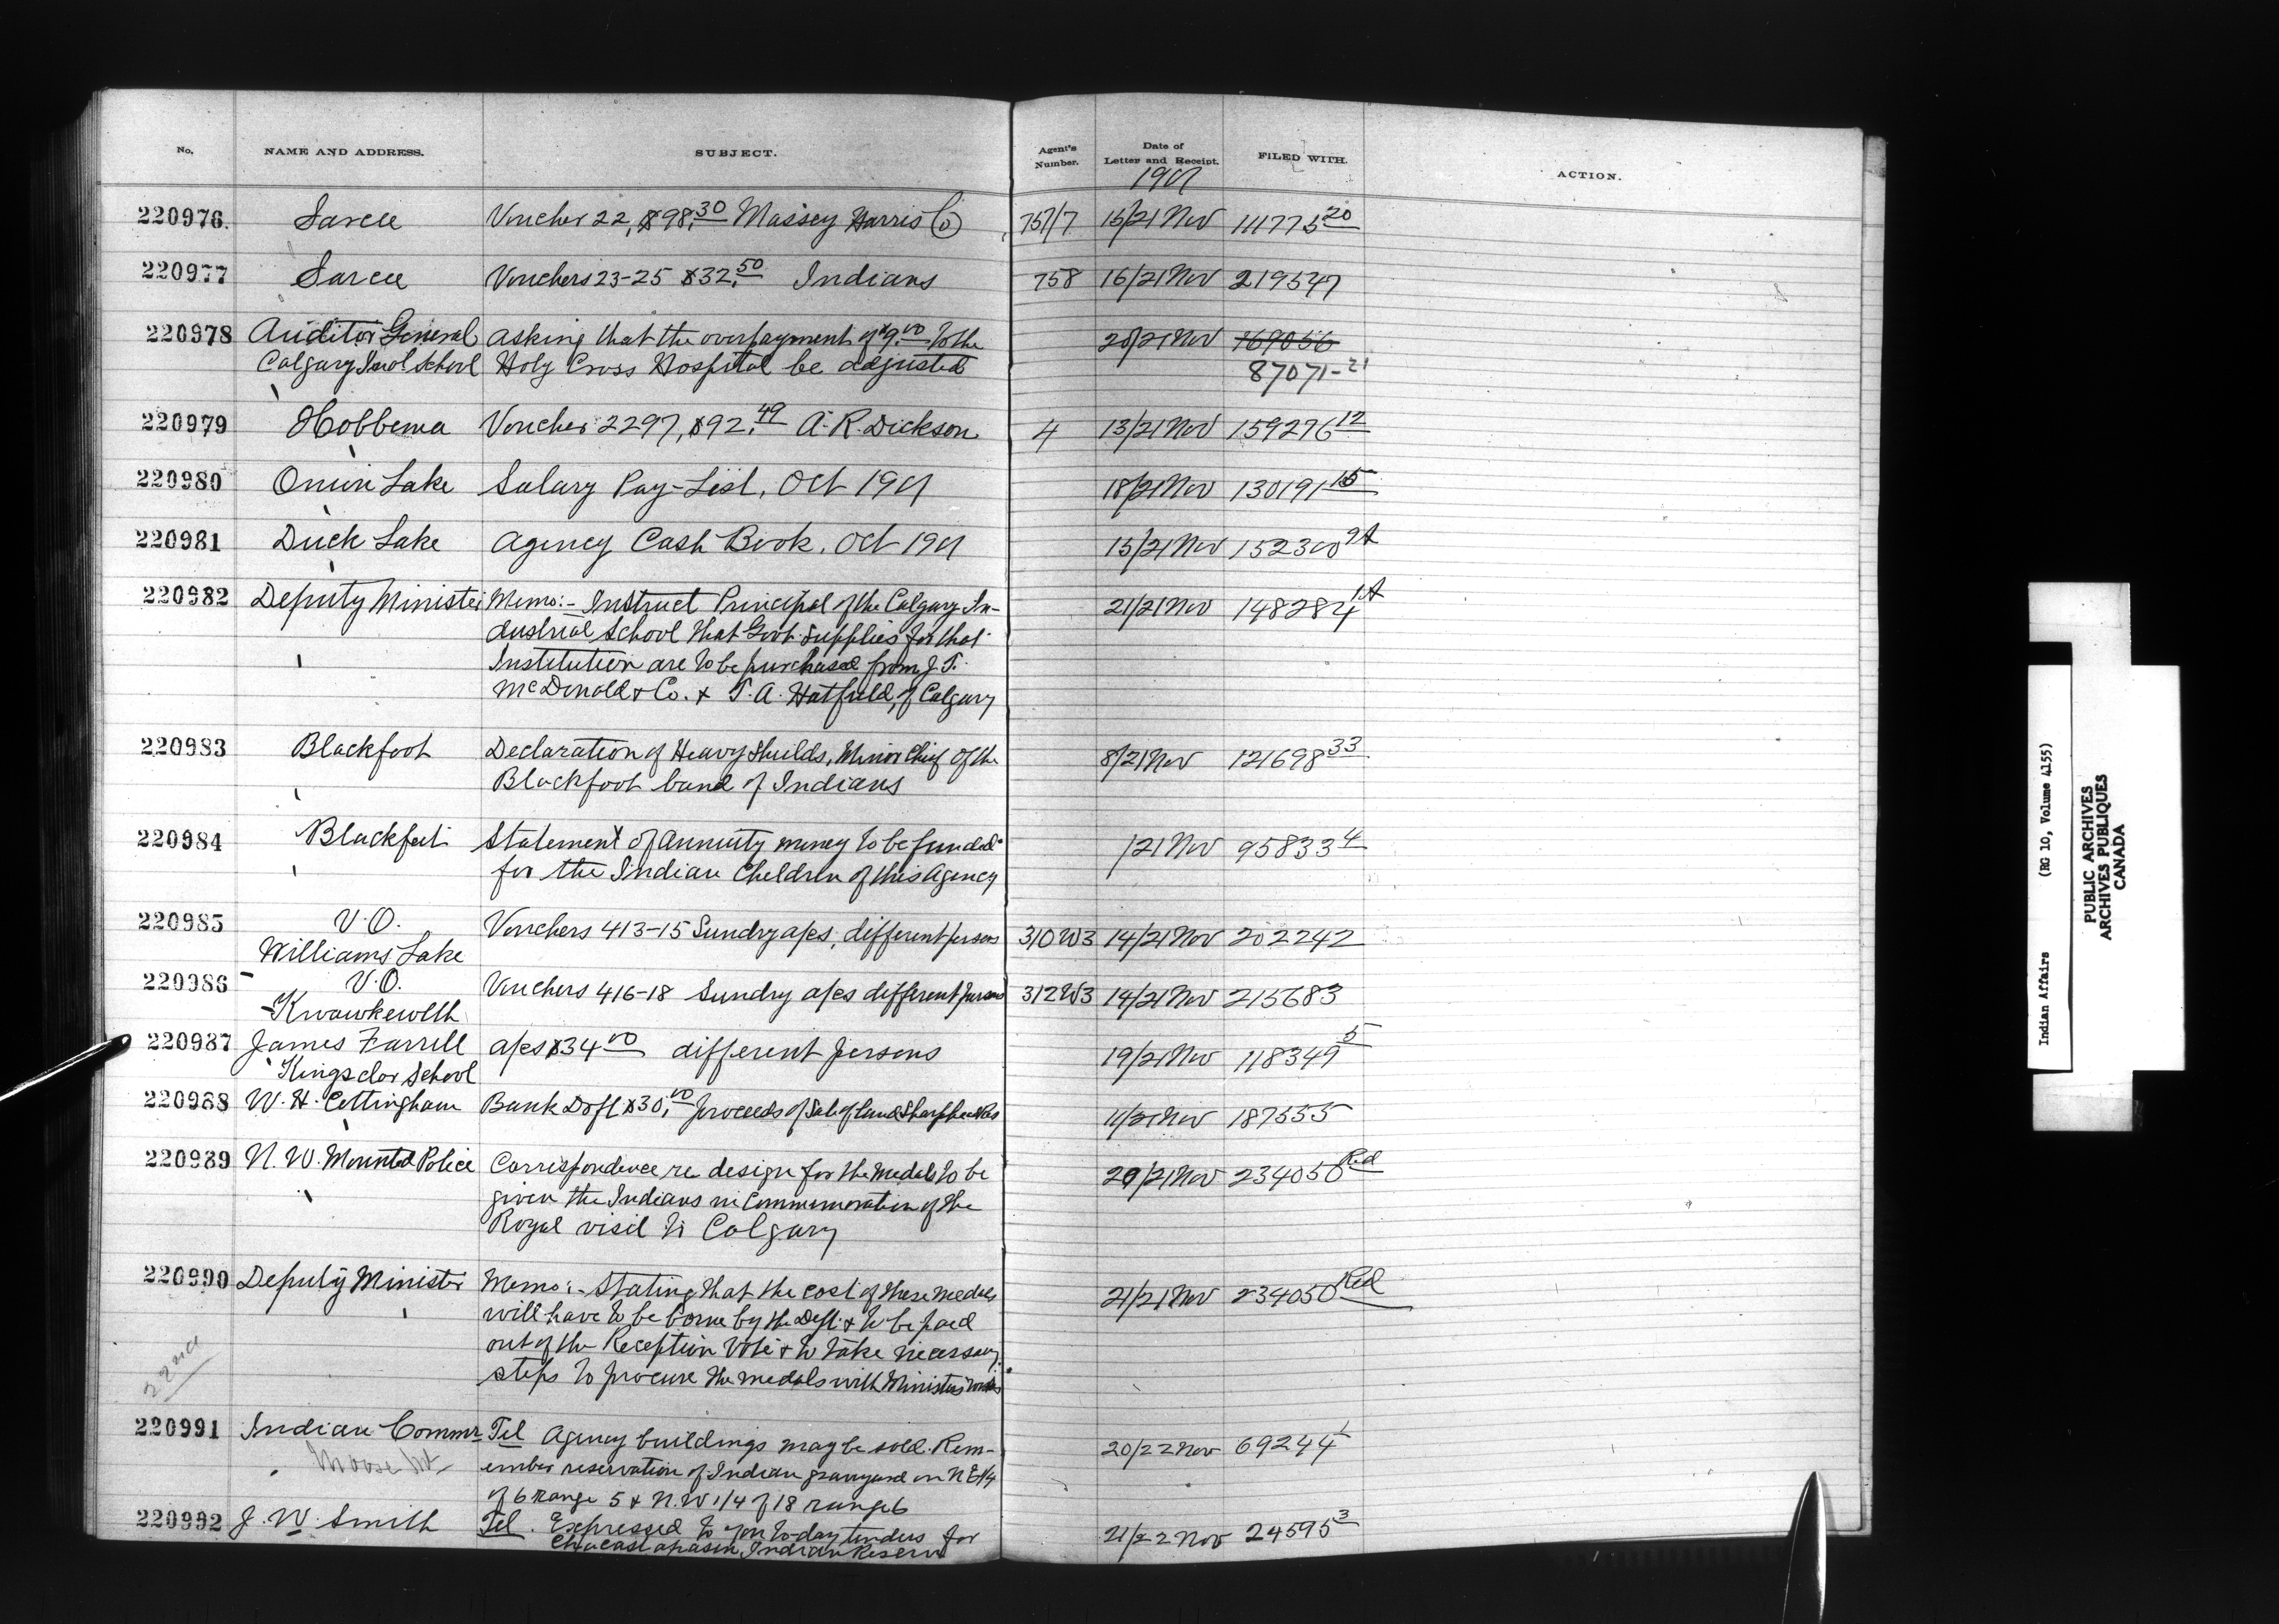 No. NAME AND ADDRESS. SUBJECT. Agent's Number. Date of Letter and Receipt. FILED WITH. ACTION.
1901
220976. Sarcee Voucher 22, $98.30 Massey Harris Co 757/7 15/21 Nov 111775 20
220977 Sarcee Vouchers 23-25 $32.50 Indians 758 16/21 Nov 219547
220978 Auditor General asking that the overpayment of $9.00 to the 20/21 Nov 169056
Calgary Indl School Holy Cross Hospital be adjusted 87071-21
220979 Hobbema Voucher 2297, $92.49 A. R. Dickson 4 13/21 Nov 159276 12
220980 Onion Lake Salary Pay-List, Oct 1901 18/21 Nov 130191 15
220981 Duck Lake Agency Cash Book, Oct 1901 15/21 Nov 152300 9A
220982 Deputy Minister Memo:- Instruct Principal of the Calgary In- 21/21 Nov 148284 1A
dustrial School that Govt. supplies for that
Institution are to be purchased from J. T.
McDonald & Co. & T. A. Hatfield, of Calgary
220983 Blackfoot Declaration of Heavy Shields, Minor Chief of the 8/21 Nov 121698 33
Blackfoot band of Indians
220984 Blackfeet Statement of annuity money to be funded /21 Nov 95833 4
for the Indian Children of this Agency
220985 V.O. Vouchers 413-15 Sundry a/cs, different persons 310 W3 14/21 Nov 202242
Williams Lake
220986 V.O. Vouchers 416-18 Sundry a/cs different persons 312 W3 14/21 Nov 215683
Kwawkewlth
220987 James Farrell a/cs $34.00 different persons 19/21 Nov 118349 5
Kingsclar School
220988 W. H. Cottingham Bank Dft $30.00 proceeds of Sale of land Sharphead Res 11/21 Nov 187555
220989 N. W. Mounted Police Correspondence re design for the medals to be 20/21 Nov 234050 Red
given the Indians in Commemoration of the
Royal visit to Calgary
220990 Deputy Minister Memo:- Stating that the cost of these medals 21/21 Nov 234050 Red
will have to be borne by the Dept. & to be paid
out of the Reception Vote & to take necessary
steps to procure the medals with Ministers
22nd
220991 Indian Commr Tel Agency buildings may be sold. Rem- 20/22 Nov 69244 1
Moose Mt. ember reservation of Indian graveyard on N E 1/4
of 6 range 5 & N. W 1/4 of 18 range 6
220992 J. W. Smith Tel. Expressed to you to-day tenders for 21/22 Nov 24595 3
Chacastapasin Indian Reserve
Indian Affairs (RG 10, Volume 4155)
PUBLIC ARCHIVES
ARCHIVES PUBLIQUES
CANADA